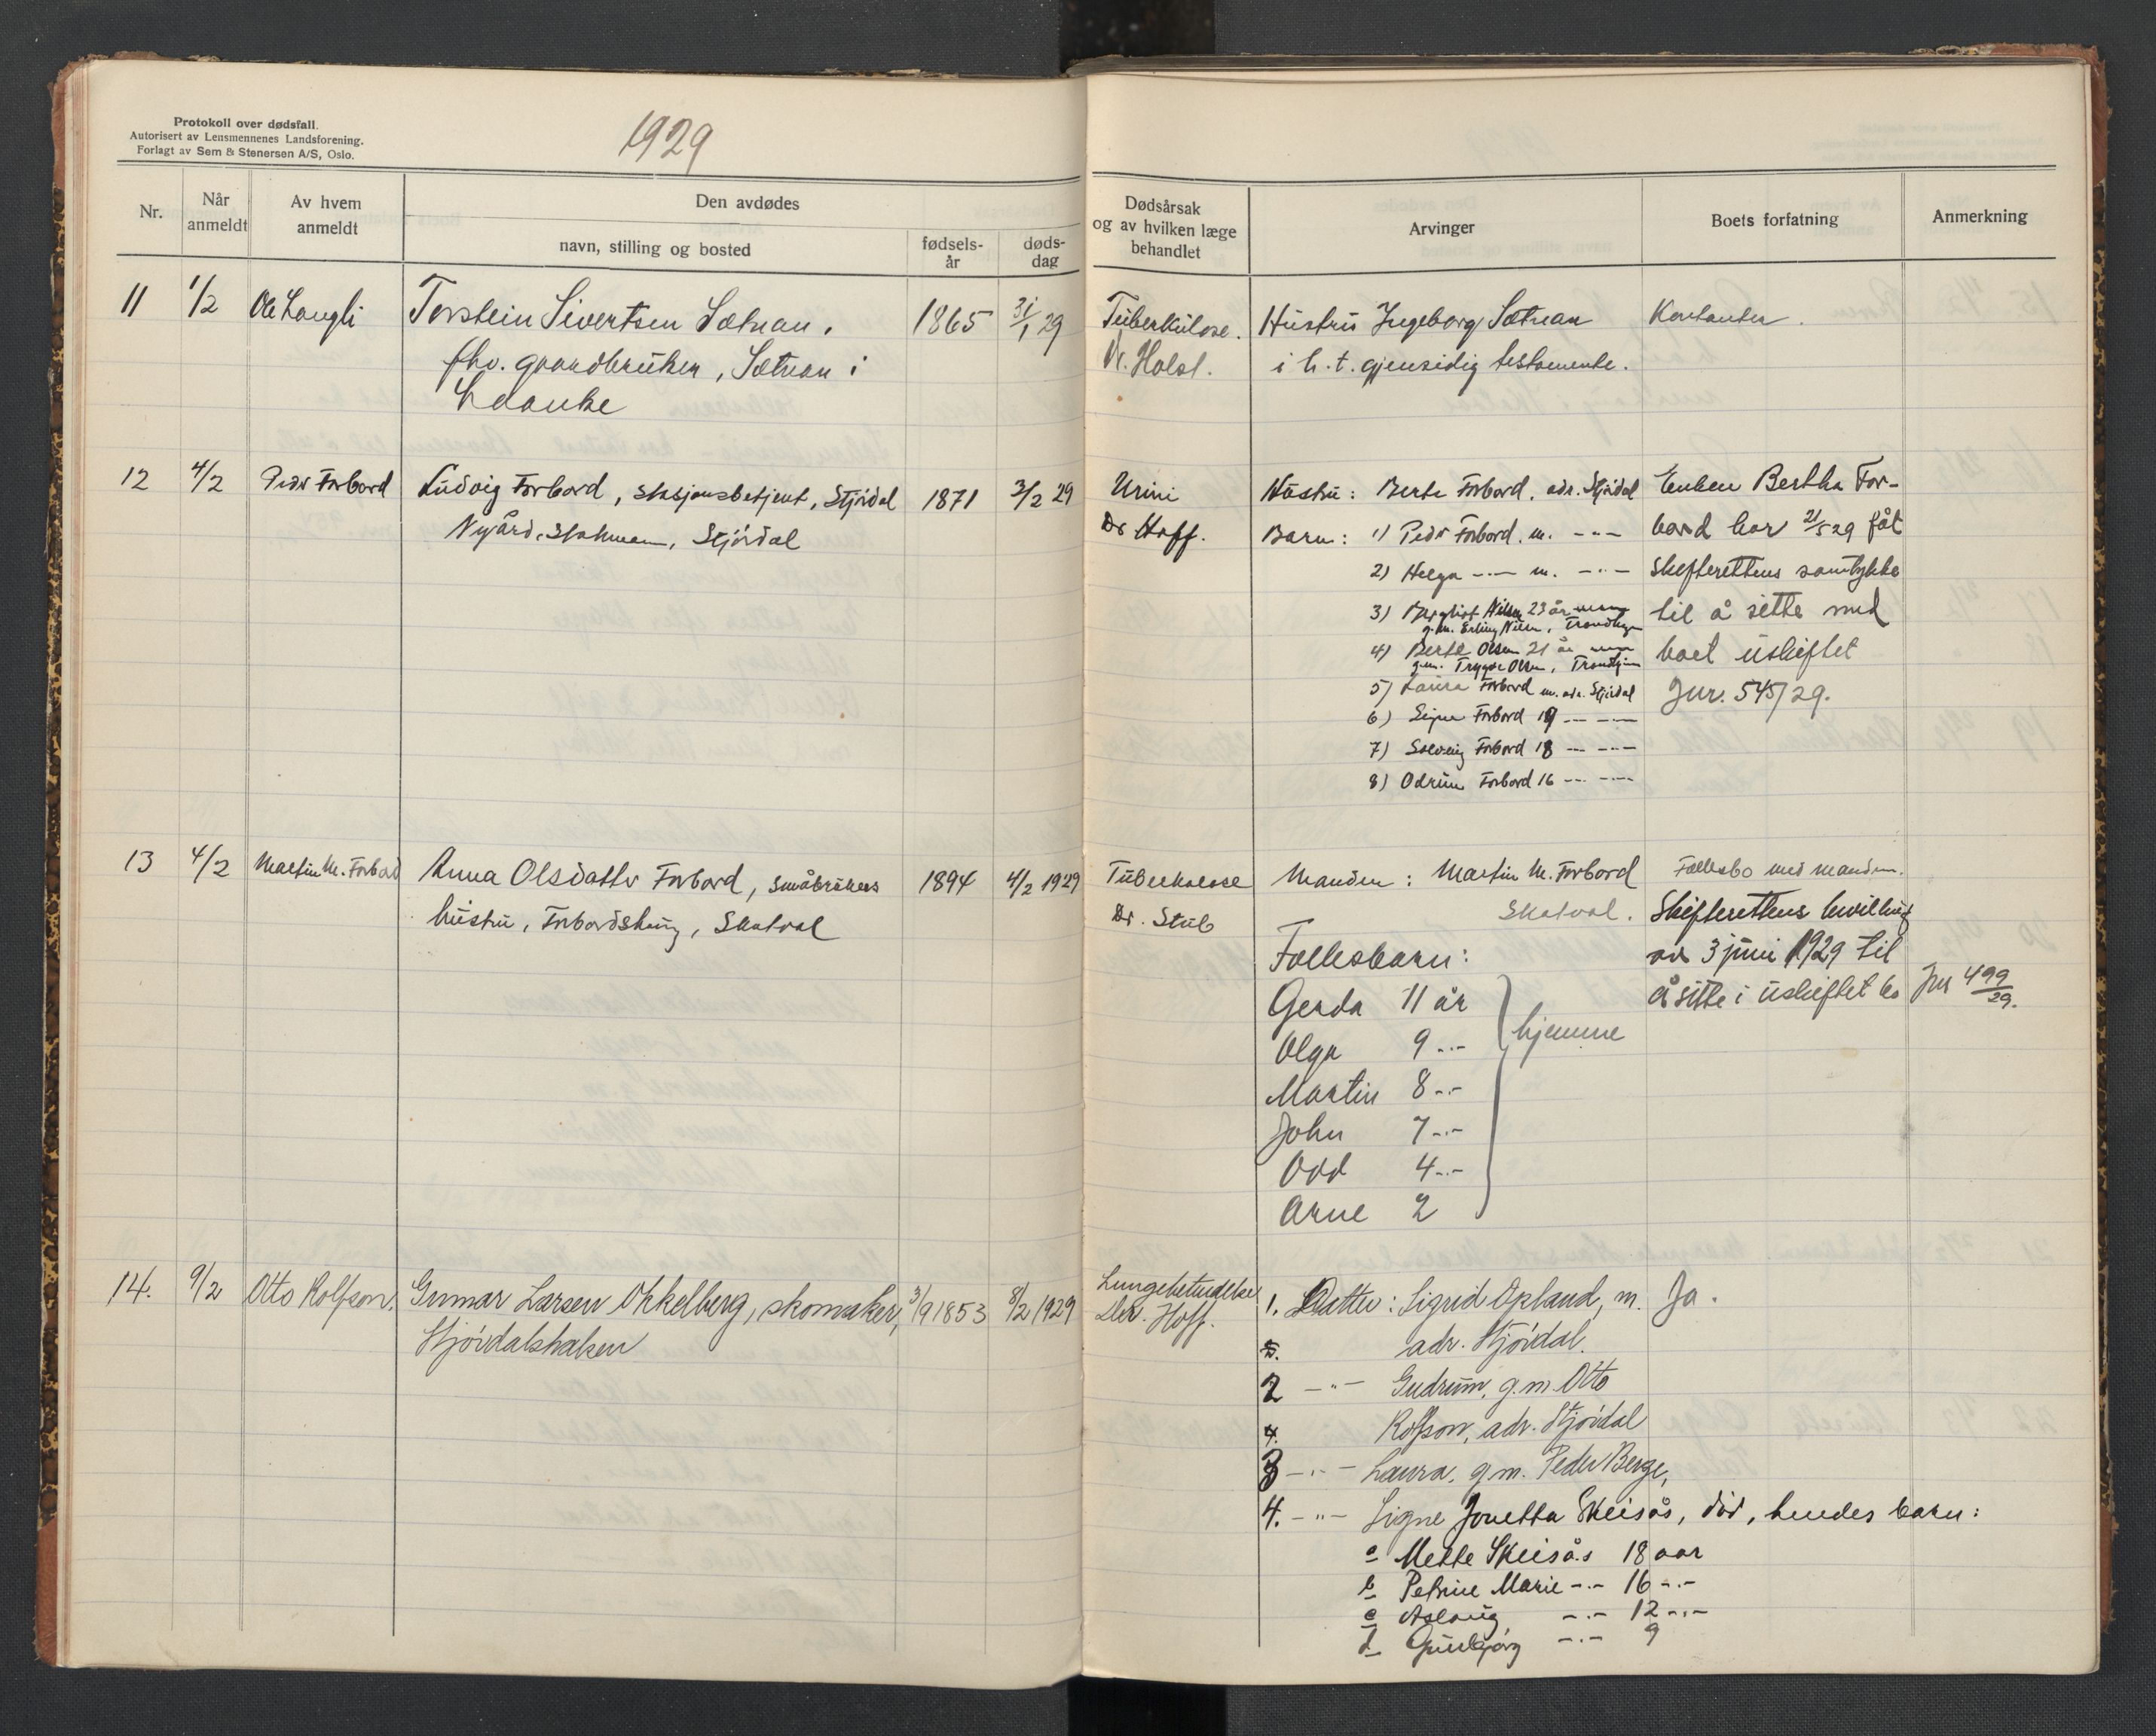 Protokoll over dødsfall.
Autorisert av Lensmennenes Landsforening.
Forlagt av Sem & Stenersen A/S, Oslo.
1929
Nr.
Når anmeldt
Av hvem anmeldt
Den avdødes
navn, stilling og bosted
fødsels-år
døds-dag
Dødsårsak og av hvilken læge behandlet
Arvinger
Boets forfatning
Anmerkning
11 1/2 Ole Langli Torstein Sivertsen Sætnan, 1865 31/1 29 Tuberkulose. Hustru Ingeborg Sætnan Kontanter.
fhv. gaardbruker, Sætnan i Dr. Holst. i h. t. gjensidig testamente.
Lånke
12 4/2 Peder Forbord Ludvig Forbord, stasjonsbetjent, Stjørdal 1871 3/2 29 Urini Hustru: Berta Forbord, adr. Stjørdal Enken Bertha For-
Nygård, Stjørdal Dr Hoff. Barn: 1) Peder Forbord. m. -"- bord har 21/5 29 fåt
2) Helga -"- m. -"- Skifterettens samtykke
3) Bergliot Nilsen 23 år til å sitte med
g.m. Erling Nilsen, Trondhjem
4) Berta Olsen 21 år boet uskiftet
g.m. Trygve Olsen, Trondhjem
5) Laura Forbord m. adr. Stjørdal Jnr. 545/29.
6) Signe Forbord 19 -"- -"-
7) Solveig Forbord 18 -"- -"-
8) Odrun Forbord 16 -"- -"-
13 4/2 Martin M. Forbord Anna Olsdatter Forbord, småbrukers 1894 4/2 1929 Tuberkolose Manden: Martin M. Forbord Fællesbo med manden.
hustru, Forbordshaug, Skatval Dr. Stub Skatval. Skifterettens bevilling
Fællesbarn: av 3 juni 1929 til
Gerda 11 år å sitte i uskiftet bo Jnr 499/29.
Olga 9 -"- hjemme
Martin 8 -"-
John 7 -"-
Odd 4 -"-
Arne 2
14. 9/2 Otto Rolfson. Gunnar Larsen Okkelberg, skomaker, 3/9 1853 8/2 1929 Lungebetendelse 1. Datter: Sigrid Opland, m. Ja.
Stjørdalshalsen Dr. Hoff. adr. Stjørdal.
2 -"- Gudrun, g.m. Otto
4. Rolfson, adr. Stjørdal
3 -"- Laura, g.m. Peder Berge,
4. -"- Signe Jonetta Skeisås, død, hendes barn:
a Mette Skeisås 18 aar
b Petrine Marie -"- 16 -"-
c Aslaug -"- 12 -"-
d Gunbjørg -"- 9